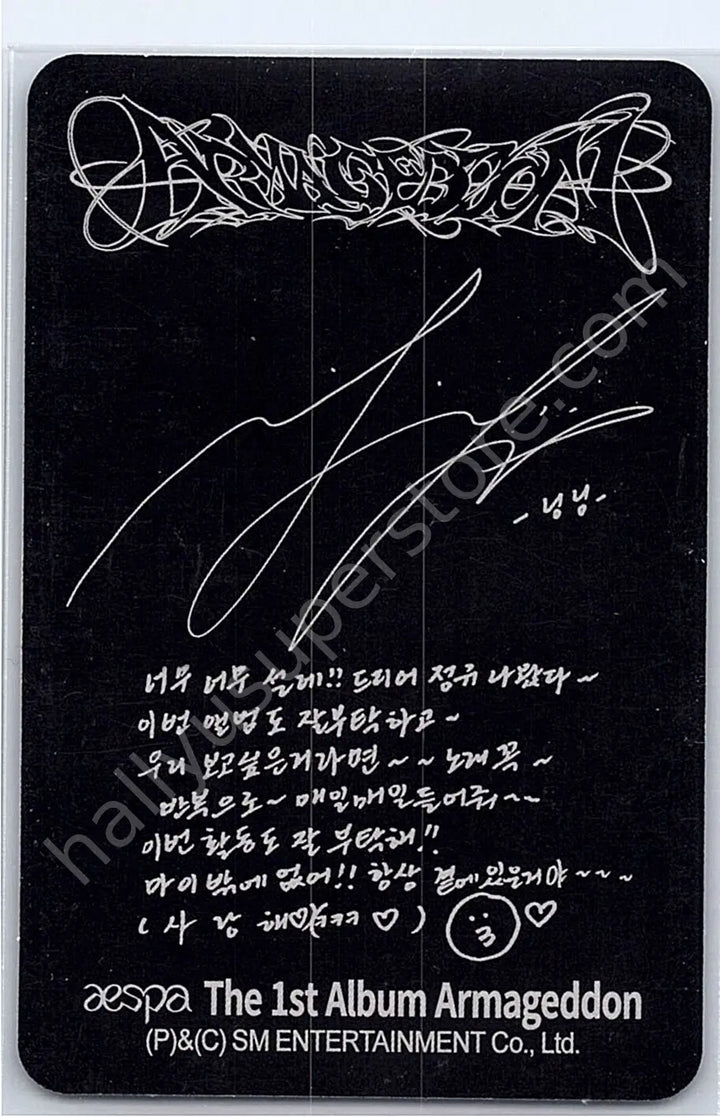 ARMAGEDDON
- 닝닝 -
너무 너무 설레!! 드디어 정규 나왔다~
이번 앨범도 잘부탁하고~
우리 보고싶은거라면~~노래 꼭~
반복으로~ 매일매일들어줘~~
이번 활동도 잘 부탁해!!
마이 밖에 없어!! 항상 곁에있을거야~~~
( 사 랑 해♡ㅋㅋㅋ ♡ ) ♡
aespa The 1st Album Armageddon
(P)&(C) SM ENTERTAINMENT Co., Ltd.
hallyusuperstore.com